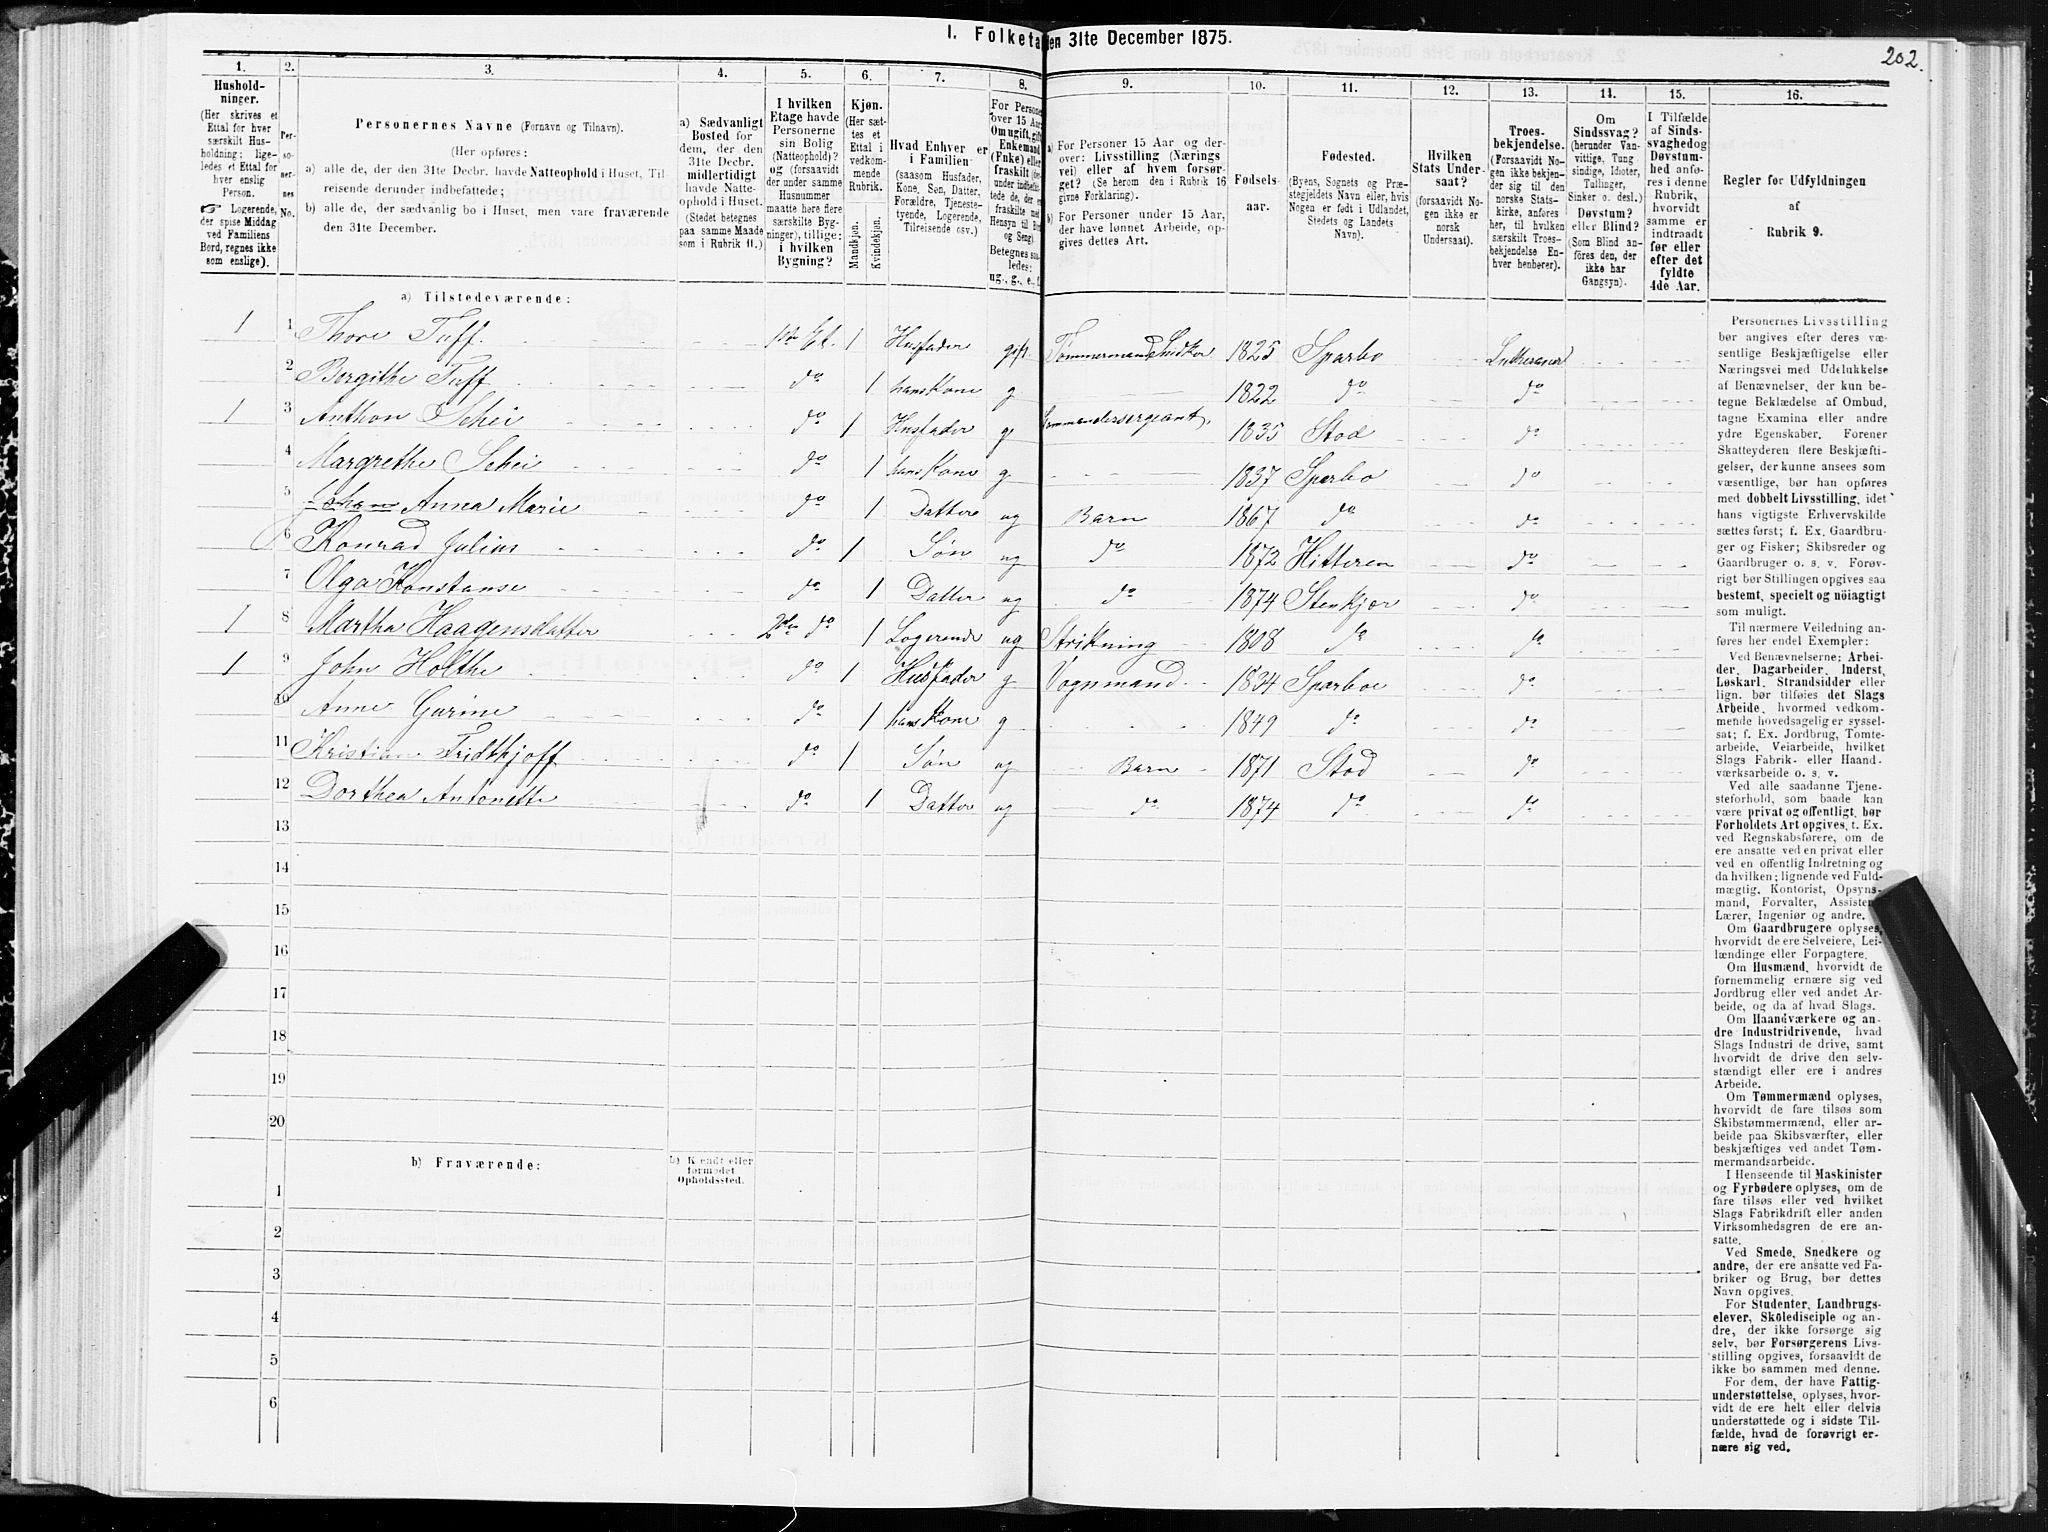 I. Folketa en 31te December 1875.
202.
1.
2.
3.
4.
5.
6.
7.
8.
9.
10.
11.
12.
13.
14.
15.
16.
Hushold-
ninger.
(Her skrives et
Ettal for hver
særskilt Hus-
holdning; lige-
ledes et Ettal for
hver enslig
Person.
☞ Logerende,
der spise Middag
ved Familiens
Bord, regnes ikke
som enslige).
Per-
so-
ner-
nes
No.
Personernes Navne (Fornavn og Tilnavn).
(Her opføres:
a) alle de, der den 31te Decbr. havde Natteophold i Huset, Til-
reisende derunder indbefattede;
b) alle de, der sædvanlig bo i Huset, men vare fraværende
den 31te December.
a) Sædvanligt
Bosted for
dem, der den
31te Decbr.
midlertidigt
havde Natte-
ophold i Huset.
(Stedet betegnes
paa samme Maade
som i Rubrik 11.)
I hvilken
Etage havde
Personerne
sin Bolig
(Natteophold)?
og (forsaavidt
der under samme
Husnummer
maatte høre flere
særskilte Byg-
ninger), tillige:
i hvilken
Bygning?
Kjøn.
(Her sæt-
tes et
Ettal i
vedkom-
mende
Rubrik.
Mandkjøn.
Kvindekjøn.
Hvad Enhver er
i Familien
(saasom Husfader,
Kone, Søn, Datter,
Forældre, Tjeneste-
tyende, Logerende,
Tilreisende osv.)
For Persone
over 15 Aar
Om ugift, gift
Enkemand
(Enke) eller
fraskilt (de
under indbefat-
tede de, der e
fraskilte med
Hensyn til Bo
og Seng).
Betegnes saa-
ledes:
ug., g., e., f.
a) For Personer 15 Aar og der-
over: Livsstilling (Nærings
vei) eller af hvem forsør-
get? (Se herom den i Rubrik 16
givne Forklaring).
b) For Personer under 15 Aar,
der have lønnet Arbeide, op-
gives dettes Art.
Fødsels-
aar.
Fødested.
(Byens, Sognets og Præ-
stegjeldets Navn eller, hvis
Nogen er født i Udlandet,
Stedets og Landets
Navn).
Hvilken
Stats Under-
saat?
(forsaavidt No-
gen ikke er
norsk
Undersaat).
Troes-
bekjendelse.
(Forsaavidt No-
gen ikke bekjen-
der sig til den
norske Stats-
kirke, anføres
her, til hvilken
særskilt Troes-
bekjendelse En-
hver henhører).
Om
Sindssvag?
(herunder Van-
vittige, Tung
sindige, Idioter,
Tullinger,
Sinker o. desl.)
Døvstum?
eller Blind?
(Som Blind an-
føres den, der
ikke har
Gangsyn).
I Tilfælde
af Sinds-
svaghed og
Døvstum-
hed anfø-
res i denne
Rubrik,
hvorvidt
samme er
indtraadt
før eller
efter det
fyldte
4de Aar.
Regler for Udfyldningen
af
Rubrik 9.
a) Tilstedeværende:
1 1 Thore Tuff. 1ste Et. 1 Husfader gift Tømmermand Snidker 1825 Sparbo Lutheraner
2 Bergithe Tuff do 1 hans Kone g 1822 do do
1 3 Anthon Schei do 1 Husfader g Kommandersergeant, 1835 Stod do
4 Margrethe Schei do 1 hans Kone g 1837 Sparbo do
5 Johan Anna Marie do 1 Datter ug Barn 1867 do do
6 Konrad Julius do 1 Søn ug do 1872 Hitteren do
7 Olga Konstanse do 1 Datter ug do 1874 Stenkjær do
1 8 Martha Haagensdatter 2den do 1 Logerende ug Strikning 1808 do do
1 9 John Holthe do 1 Husfader g Vognmand 1834 Sparboe do
10 Anne Gurine do 1 hans Kone g 1849 do do
11 Kristian Fridthjoff do 1 Søn ug Barn 1871 Stod do
12 Dorthea Antonette do 1 Datter ug do 1874 do do
13
14
15
16
17
18
19
20
b) Fraværende:
b) Kjendt eller
formodet
Opholdssted.
1
2
3
4
5
6
Personernes Livsstilling
bør angives efter deres væ-
sentlige Beskjæftigelse eller
Næringsvei med Udelukkelse
af Benævnelser, der kun be-
tegne Beklædelse af Ombud,
tagne Examina eller andre
ydre Egenskaber. Forener
Skatteyderen flere Beskjæfti-
gelser, der kunne ansees som
væsentlige, bør han opføres
med dobbelt Livsstilling, idet
hans vigtigste Erhvervskilde
sættes først; f. Ex. Gaardbru-
ger og Fisker; Skibsreder og
Gaardbruger o. s. v. Forøv-
rigt bør Stillingen opgives saa
bestemt, specielt og nöiagtigt
som muligt.
Til nærmere Veiledning an-
føres her endel Exempler:
Ved Benævnelserne: Arbei-
der, Dagarbeider, Inderst,
Løskarl, Strandsidder eller
lign. bør tilføies det Slags
Arbeide, hvormed vedkom-
mende hovedsagelig er syssel-
sat; f. Ex. Jordbrug, Tomte-
arbeide, Veiarbeide, hvilket
Slags Fabrik- eller Haand-
værksarbeide o. s. v.
Ved alle saadanne Tjene-
steforhold, som baade kan
være privat og offentligt, bør
Forholdets Art opgives, t. Ex.
ved Regnskabsførere, om de
ere ansatte ved en privat eller
ved en offentlig Indretning og
da hvilken; lignende ved Fuld-
mægtig, Kontorist, Opsyns-
mand, Forvalter, Assisten
Lærer, Ingeniør og andre.
Om Gaardbrugere oplyses,
hvorvidt de ere Selveiere, Lei-
lændinge eller Forpagtere.
Om Husmænd, hvorvidt de
fornemmelig ernære sig ved
Jordbrug eller ved andet Ar-
beide, og da af hvad Slags.
Om Haandværkere og an-
dre Industridrivende, hvad
Slags Industri de drive, samt
hvorvidt de drive den selv-
stændigt eller ere i andres
Arbeide.
Om Tømmermænd oplyses,
hvorvidt de fare tilsøs som
Skibstømmermænd, eller ar-
beide paa Skibsværfter, eller
beskjæftiges ved andet Tøm-
mermandsarbeide.
I Henseende til Maskinister
og Fyrbødere oplyses, om de
fare tilsøs eller ved hvilket
Slags Fabrikdrift eller anden
Virksomhedsgren de ere an-
satte.
Ved Smede, Snedkere og
andre, der ere ansatte ved Fa-
briker og Brug, bør dettes
Navn opgives.
For Studenter, Landbrugs-
elever, Skoledisciple og an-
dre, der ikke forsørge sig
selv, bør Forsørgerens Livs-
stilling opgives, forsaavidt de
ikke bo sammen med denne.
For dem, der have Fattig-
understøttelse, oplyses, hvor-
vidt de ere helt eller delvis
understøttede og i sidste Til-
fælde, hvad de forøvrigt er-
nære sig ved.